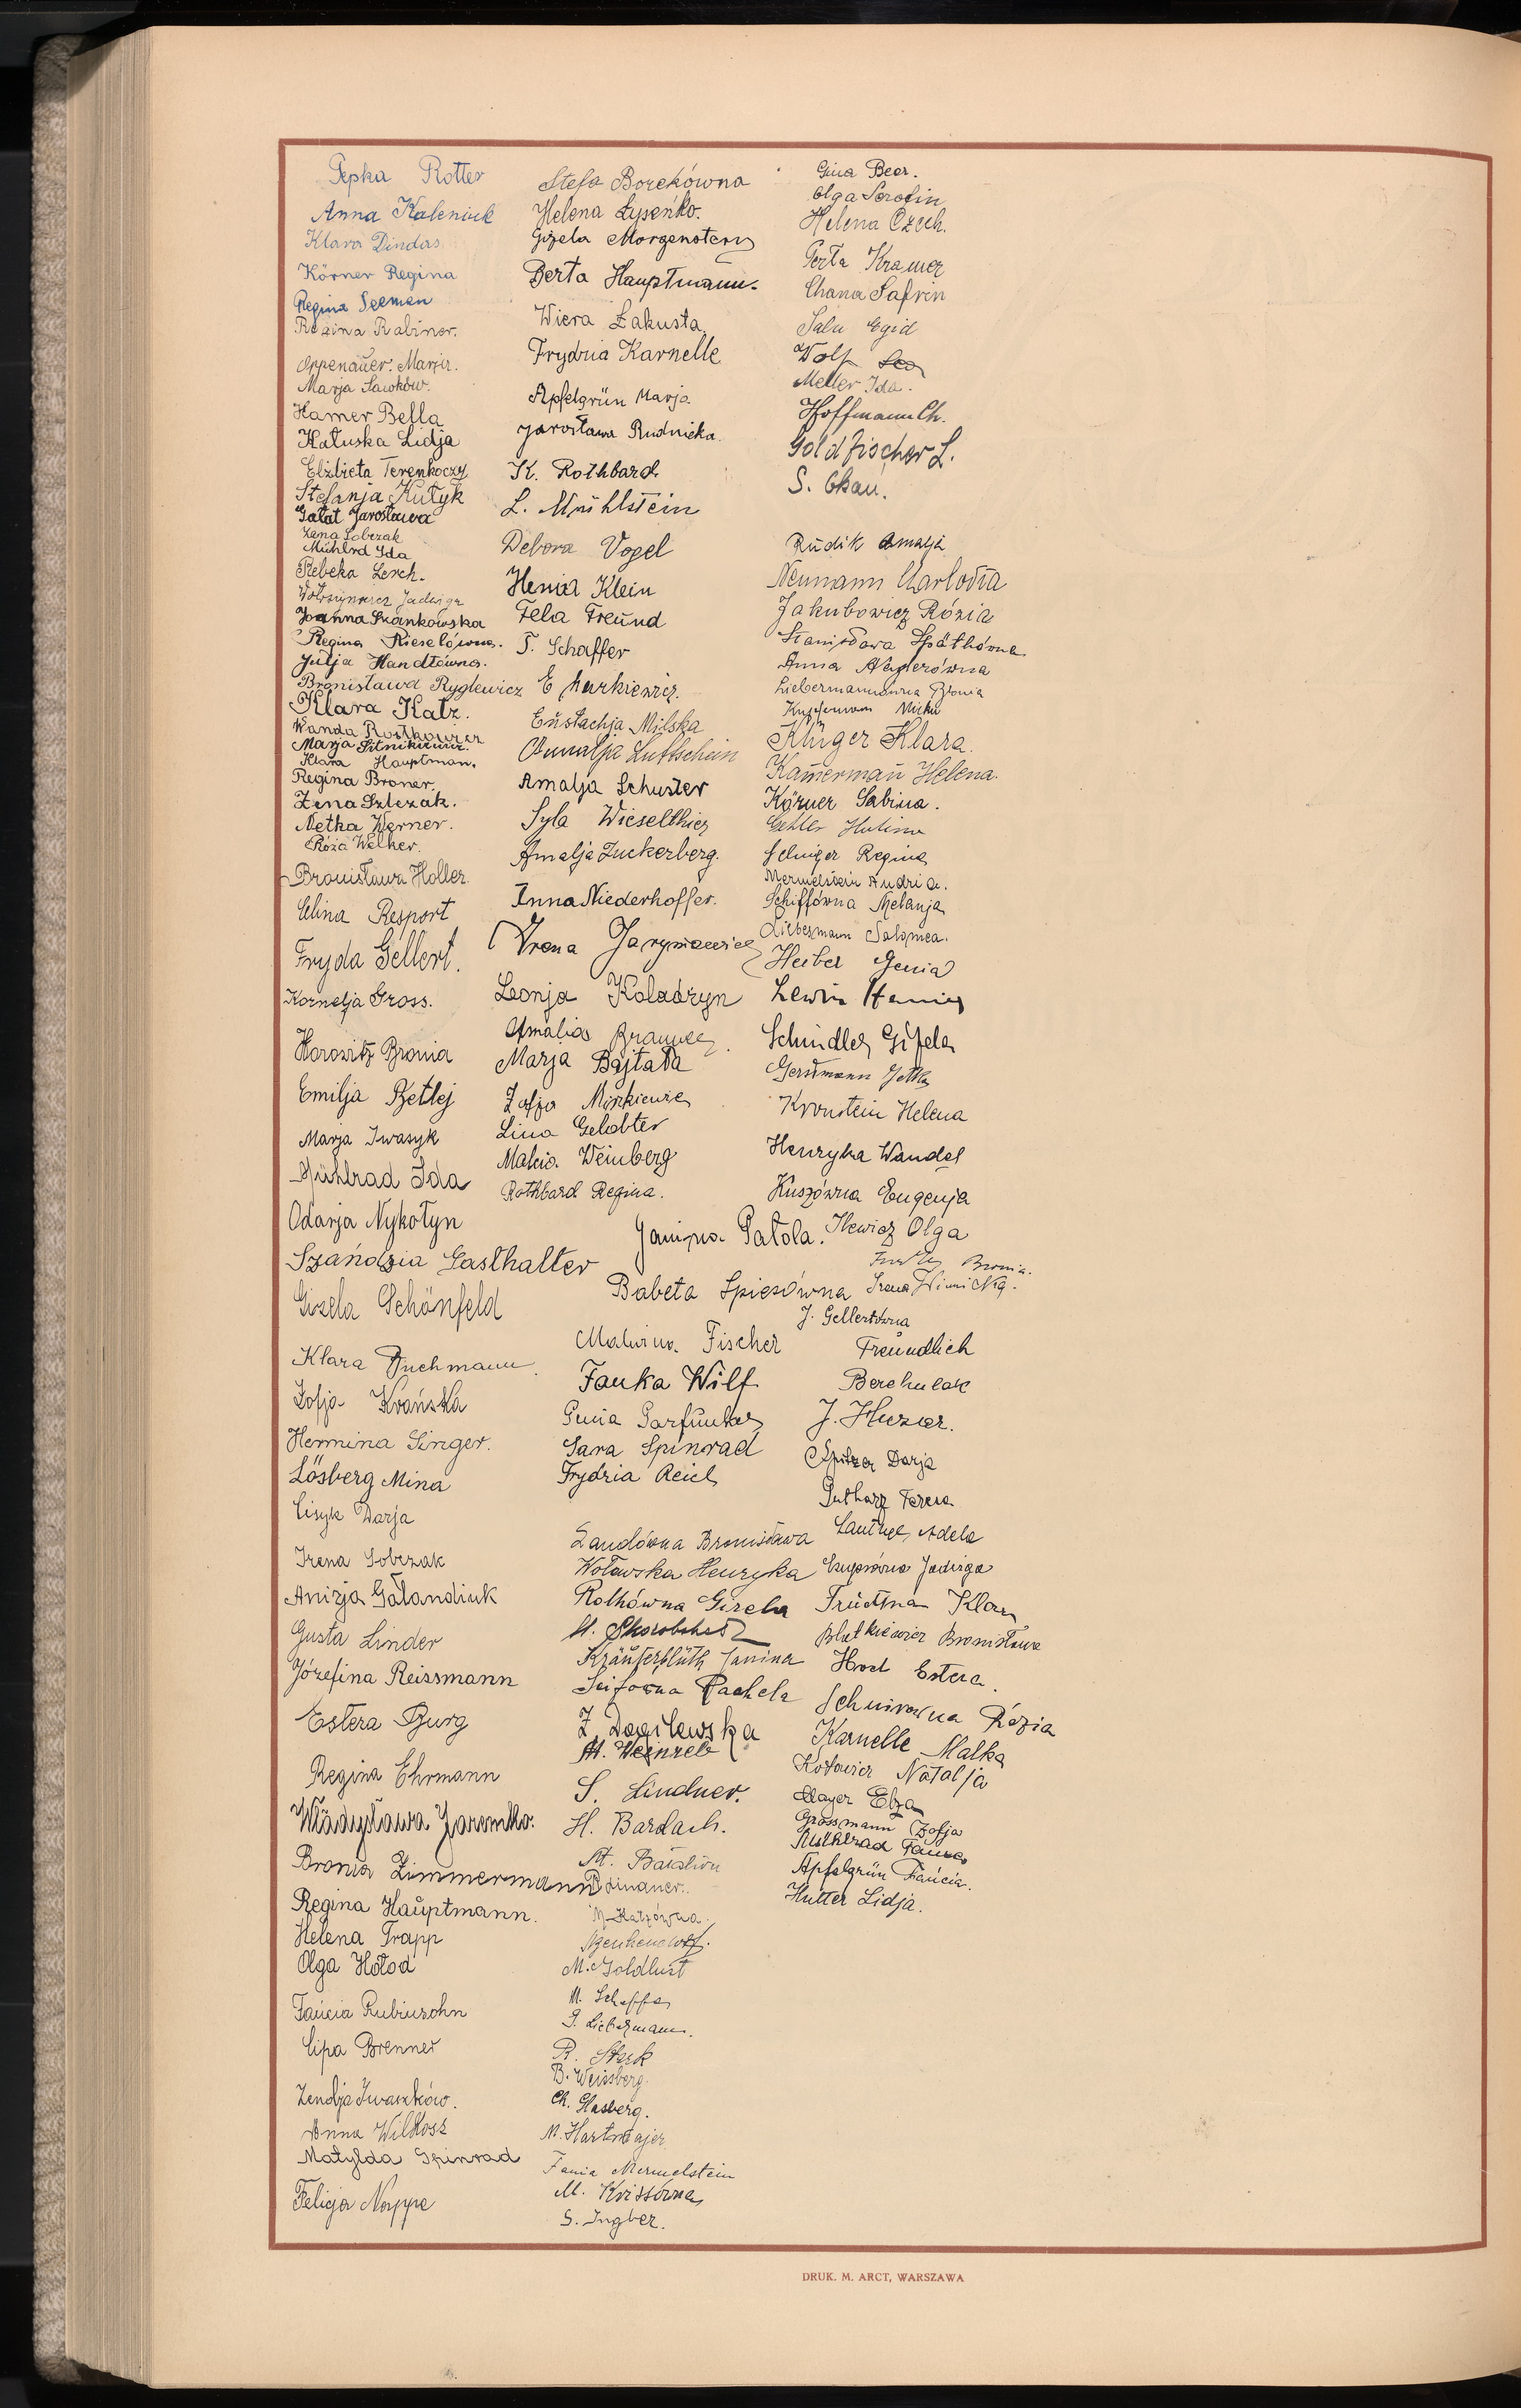 Pepka Rotter
Anna Kaleniuk
Klara Dindas
Körner Regina
Regina Seeman
Regina Rabiner.
Oppenauer Marja.
Marja Sawków.
Hamer Bella
Hatuska Lidja
Elżbieta Terenkoczy
Stefanja Kutyk
Gałat Jarosława
Lena Sobczak
Mühlrd Ida
Rebeka Lerch.
Jadwiga
Joanna Szankowska
Regina Kieselówna.
Julja Handtówna.
Bronisława Ryglewicz
Klara Katz.
Wanda Rostkowier
Marja Sitnikiewicz.
Klara Hauptman.
Regina Broner.
Żena Szlezak.
Netka Werner.
Róża Welker.
Bronisława Holler.
Celina Resport
Fryda Gellert.
Kornelja Gross.
Horowitz Bronia
Emilja Betlej
Marja Iwasyk
Mühlrad Ida
Odarja Nykołyn
Szańdzia Gasthalter
Gizela Schönfeld
Klara Tuchmann.
Zofja Krańska
Hermina Singer.
Lösberg Mina
Cisyk Darja
Irena Sobczak
Anizja Gałandiuk
Gusta Linder
Józefina Reissmann
Estera Burg
Regina Ehrmann
Władysława Jaremko.
Bronia Zimmermann
Regina Hauptmann.
Helena Trapp
Olga Hołod
Fańcia Rubinsohn
Cipa Brenner
Zendja Iwaszków.
Anna Wilkosz
Matylda Spinrad
Felicja Nappe
Stefa Borekówna
Helena Łysenko.
Gizela Morgenstern
Berta Hauptmann.
Wiera Zakusta.
Frydzia Karnelle
Apfelgrün Marja.
Jarosława Rudnicka.
K. Rothbard
L. Mühlstein
Debora Vogel
Henia Klein
Fela Freund
T. Schaffer
E Markiewicz.
Eustachja Milska
Amalja Luftschein
Amalja Schuster
Syla Wieselthier
Amalja Zuckerberg.
Anna Niederhoffer.
Irena Jarymowicz
Leonja Koladzyn
Amalia Brawer.
Marja Bajtała
Zofja Miśkiewicz
Lina Gelobter
Malcia Weinberg
Rothbard Regina.
Janina Patola.
Babeta Spiesówna
Malwina Fischer
Fanka Wilf
Genia Garfunkel
Sara Spinrad
Frydzia Reich
Landówna Bronisława
Wołowska Henryka
Rothówna Gizela
M. Skorobohat
Kräuterblüth Janina
Seifowna Rachela
Z. Dagilewska
M. Weinreb
S. Lindner.
H. Bardach.
M. Batalion
Dinauer.
M. Katzówna.
M. Goldlust
M. Scheffer
G. Liebermann.
R. Sterk
B. Weissberg.
Ch. Hasberg.
M. Hartmajer
Fania Mermelstein
M. Krissówna
S. Ingber.
Gina Beer.
Olga Serafin
Helena Czech.
Perla Kramer
Chana Safrin
Sala Egid
Wolf Lea
Meller Ida.
Hoffmann Ch.
Goldfischer L.
S. Ckau.
Rudik Amalja
Neumann Charlotta
Jakubowicz Rózia
Stanisława Späthówna
Anna Naglerówna
Liebermannówna Bronia
Kupferman Mićka
Klüger Klara.
Kamerman Helena.
Körner Sabina.
Selniger Regina
Mermelstein Andzia.
Schiffówna Melanja
Liebermann Salomea.
Heiber Genia
Lewin Henia
Schindler Gizela
Gerstmann Jetka
Kronstein Helena
Henryka Wandel
Kuszówna Eugenja
Ilewicz Olga
Bronia.
Irena Winnicka.
J. Gellertówna
Freundlich
Berchulak
J. Huzar.
Spitzer Darja
Gutharz Teresa
Lautner Adela
Jadwiga
Früchtman Klara
Blutkiewicz Bronisława
Hud Estera.
Schnirówna Rózia
Karnelle Malka
Kotowicz Natalja
Mayer Elza
Grossmann Zofja
Mühlrad Fanka
Apfelgrün Fańcia.
Hutter Lidja.
DRUK. M. ARCT, WARSZAWA